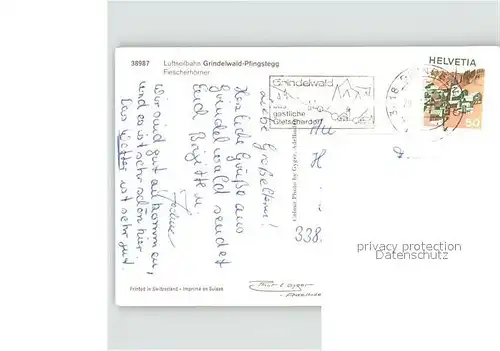 38987 Luftseilbahn Grindelwald-Pfingstegg
Fiescherhörner
HELVETIA
50
Grindelwald
das
gastliche
Gletscherdorf
Liebe Großeltern!
Herzliche Grüße aus
Grindelwald sendet
Euch Brigitte u.
Wir sind gut angekommen,
und es ist sehr schön hier.
Das Wetter ist sehr gut.
Colour Photo by Gyger, Adelboden
An
H
338
privacy protection
Datenschutz
Printed in Switzerland - Imprimé en Suisse